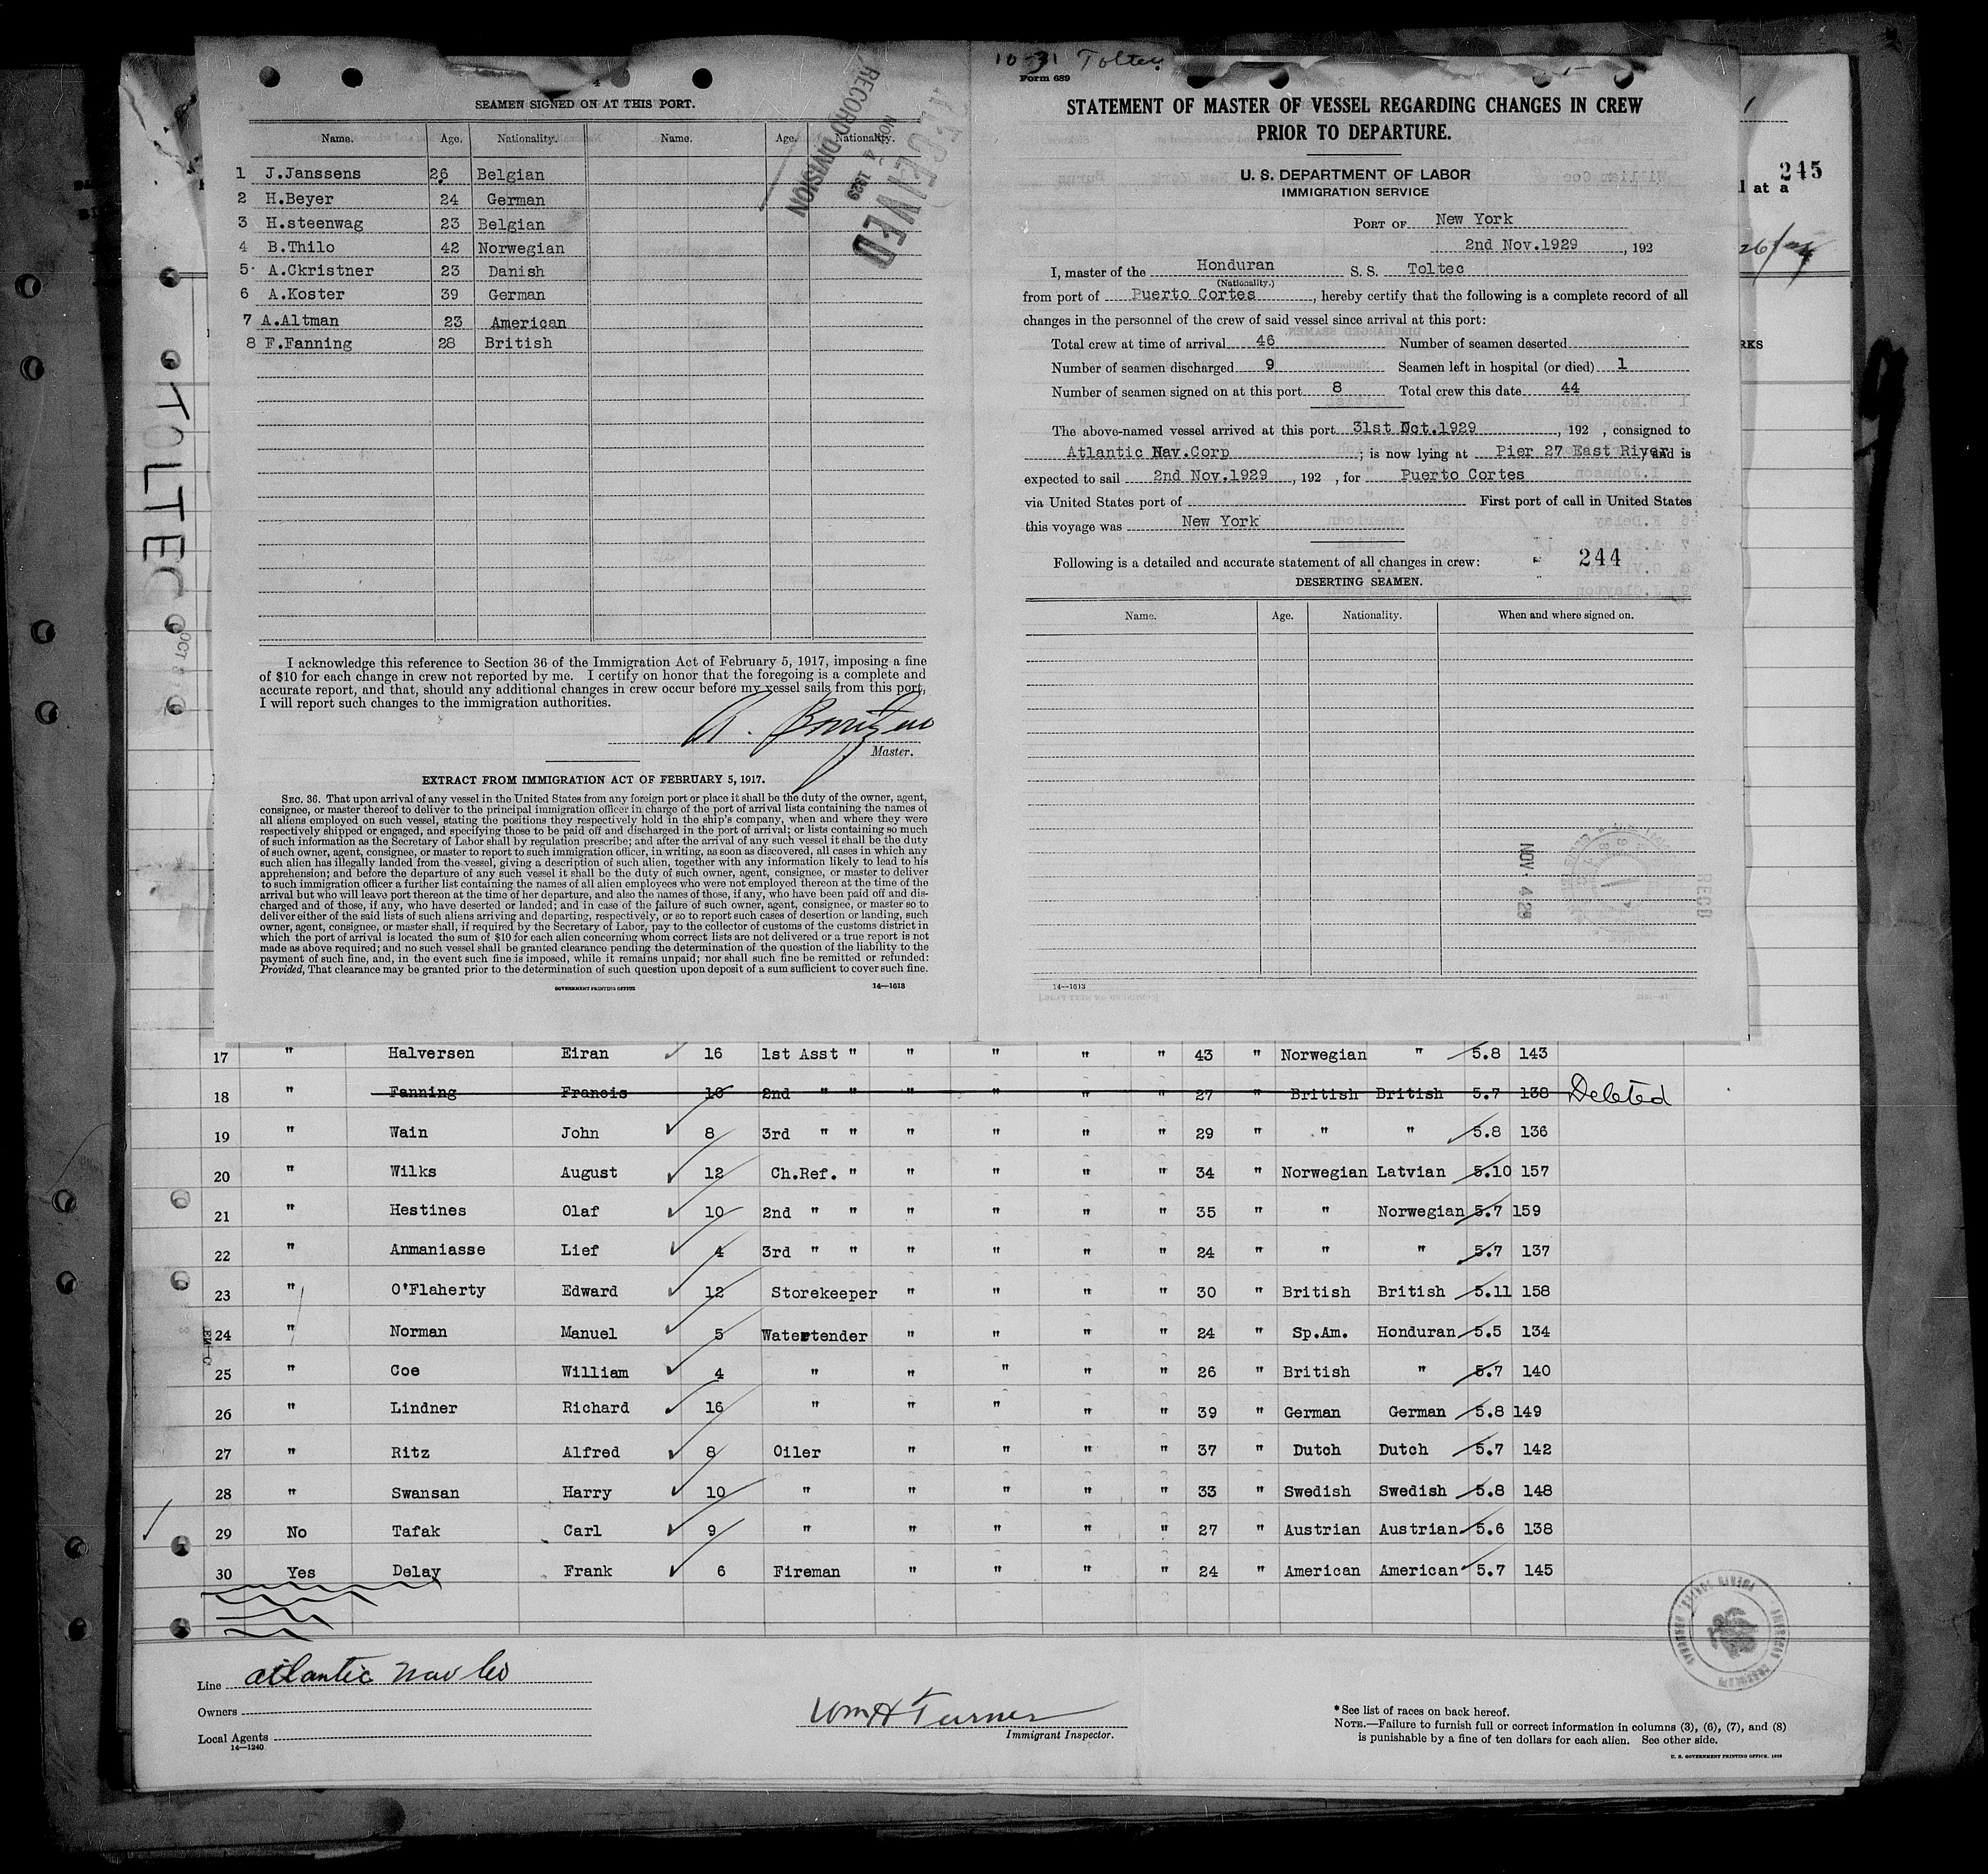 SEAMEN SIGNED ON AT THIS PORT.
Name. Age. Nationality. Name. Age. Nationality.
1 J.Janssens 26 Belgian
2 H.Beyer 24 German
3 H.steenwag 23 Belgian
4 B.Thilo 42 Norwegian
5 A.Ckristner 23 Danish
6 A.Koster 39 German
7 A.Altman 23 American
8 F.Fanning 28 British
RECEIVED
NOV 4 1929
RECORD DIVISION
I acknowledge this reference to Section 36 of the Immigration Act of February 5, 1917, imposing a fine
of $10 for each change in crew not reported by me. I certify on honor that the foregoing is a complete and
accurate report, and that, should any additional changes in crew occur before my vessel sails from this port,
I will report such changes to the immigration authorities.
Master.
EXTRACT FROM IMMIGRATION ACT OF FEBRUARY 5, 1917.
SEC. 36. That upon arrival of any vessel in the United States from any foreign port or place it shall be the duty of the owner, agent,
consignee, or master thereof to deliver to the principal immigration officer in charge of the port of arrival lists containing the names of
all aliens employed on such vessel, stating the positions they respectively hold in the ship's company, when and where they were
respectively shipped or engaged, and specifying those to be paid off and discharged in the port of arrival; or lists containing so much
of such information as the Secretary of Labor shall by regulation prescribe; and after the arrival of any such vessel it shall be the duty
of such owner, agent, consignee, or master to report to such immigration officer, in writing, as soon as discovered, all cases in which any
such alien has illegally landed from the vessel, giving a description of such alien, together with any information likely to lead to his
apprehension; and before the departure of any such vessel it shall be the duty of such owner, agent, consignee, or master to deliver
to such immigration officer a further list containing the names of all alien employees who were not employed thereon at the time of the
arrival but who will leave port thereon at the time of her departure, and also the names of those, if any, who have been paid off and dis-
charged and of those, if any, who have deserted or landed; and in case of the failure of such owner, agent, consignee, or master so to
deliver either of the said lists of such aliens arriving and departing, respectively, or so to report such cases of desertion or landing, such
owner, agent, consignee, or master shall, if required by the Secretary of Labor, pay to the collector of customs of the customs district in
which the port of arrival is located the sum of $10 for each alien concerning whom correct lists are not delivered or a true report is not
made as above required; and no such vessel shall be granted clearance pending the determination of the question of the liability to the
payment of such fine, and, in the event such fine is imposed, while it remains unpaid; nor shall such fine be remitted or refunded:
Provided, That clearance may be granted prior to the determination of such question upon deposit of a sum sufficient to cover such fine.
GOVERNMENT PRINTING OFFICE 14—1613
10-31 Toltec
Form 689
STATEMENT OF MASTER OF VESSEL REGARDING CHANGES IN CREW
PRIOR TO DEPARTURE.
U. S. DEPARTMENT OF LABOR
IMMIGRATION SERVICE
PORT OF New York
2nd Nov.1929, 192
I, master of the Honduran S. S. Toltec
(Nationality.)
from port of Puerto Cortes, hereby certify that the following is a complete record of all
changes in the personnel of the crew of said vessel since arrival at this port:
Total crew at time of arrival 46 Number of seamen deserted
Number of seamen discharged 9 Seamen left in hospital (or died) 1
Number of seamen signed on at this port 8 Total crew this date 44
The above-named vessel arrived at this port 31st Oct.1929, 192 , consigned to
Atlantic Nav.Corp; is now lying at Pier 27 East River, and is
expected to sail 2nd Nov.1929, 192 , for Puerto Cortes
via United States port of First port of call in United States
this voyage was New York
Following is a detailed and accurate statement of all changes in crew: 244
DESERTING SEAMEN.
Name. Age. Nationality. When and where signed on.
NOV 4 29
RECD
14—1613
245
at a
RKS
TOLTEC
OCT
17 " Halversen Eiran 16 1st Asst " " " " " 43 " Norwegian " 5.8 143
18 " Fanning Francis 10 2nd " " " " " " 27 " British British 5.7 138 Deleted
19 " Wain John 8 3rd " " " " " " 29 " " " 5.8 136
20 " Wilks August 12 Ch.Ref. " " " " " 34 " Norwegian Latvian 5.10 157
21 " Hestines Olaf 10 2nd " " " " " " 35 " " Norwegian 5.7 159
22 " Anmaniasse Lief 4 3rd " " " " " " 24 " " " 5.7 137
23 " O'Flaherty Edward 12 Storekeeper " " " " 30 " British British 5.11 158
24 " Norman Manuel 5 Watertender " " " " 24 " Sp.Am. Honduran 5.5 134
25 " Coe William 4 " " " " " 26 " British " 5.7 140
26 " Lindner Richard 16 " " " " " 39 " German German 5.8 149
27 " Ritz Alfred 8 Oiler " " " " 37 " Dutch Dutch 5.7 142
28 " Swansan Harry 10 " " " " " 33 " Swedish Swedish 5.8 148
29 No Tafak Carl 9 " " " " " 27 " Austrian Austrian 5.6 138
30 Yes Delay Frank 6 Fireman " " " " 24 " American American 5.7 145
Line Atlantic Nav Co
Owners
Local Agents
14—1240
Wm H Turner
Immigrant Inspector.
* See list of races on back hereof.
NOTE.—Failure to furnish full or correct information in columns (3), (6), (7), and (8)
is punishable by a fine of ten dollars for each alien. See other side.
U. S. GOVERNMENT PRINTING OFFICE. 1929